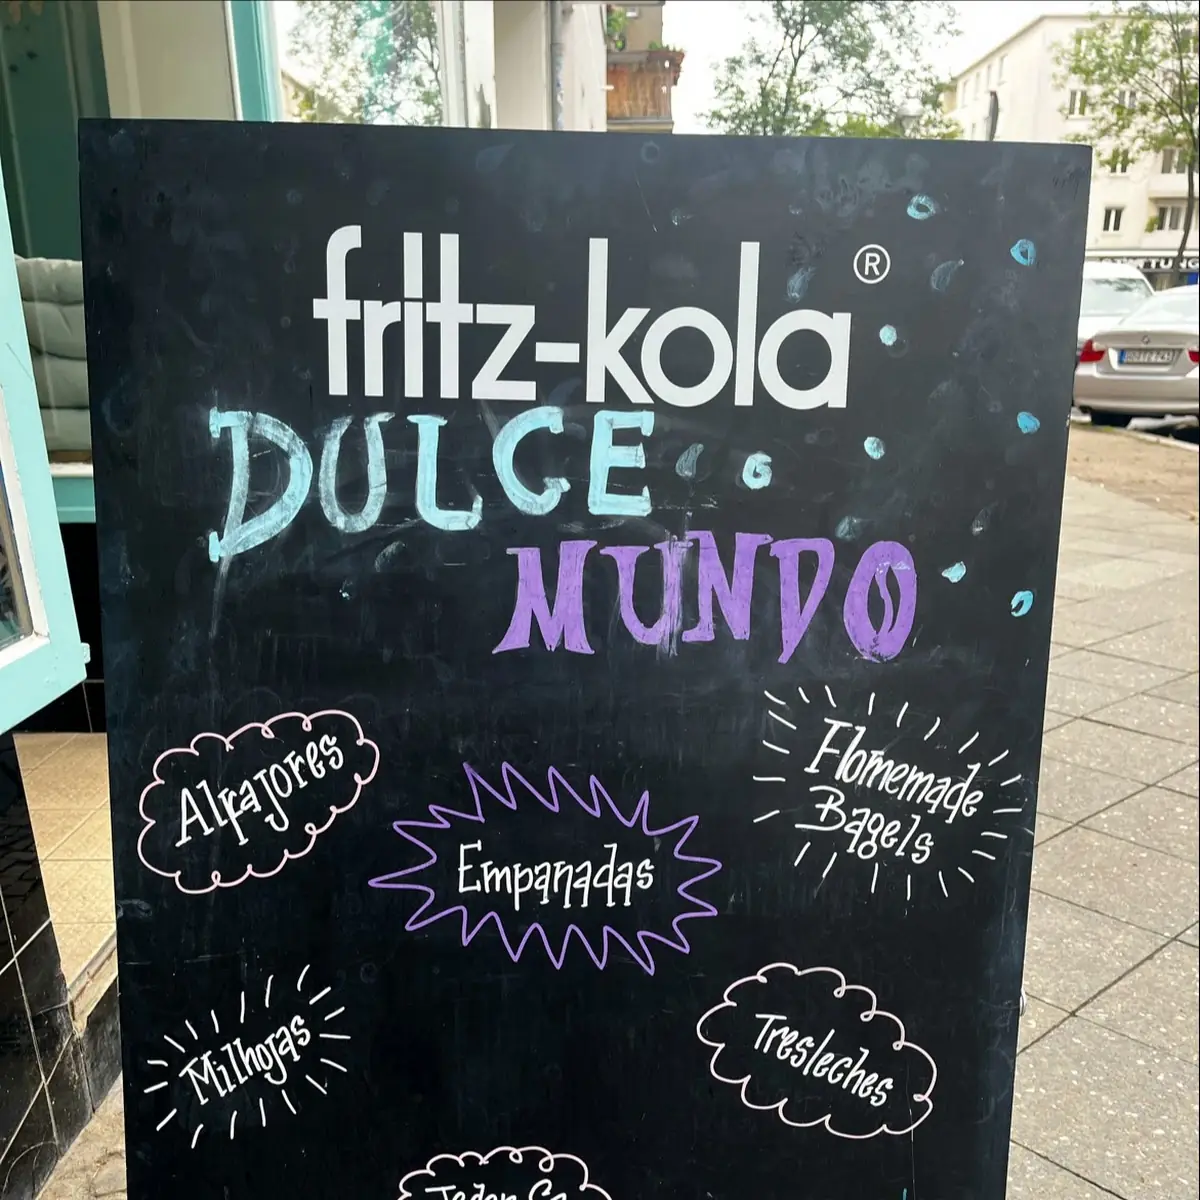 fritz-kola®
DULCE
MUNDO
Alfajores
Homemade
Bagels
Empanadas
Milhojas
Tresleches